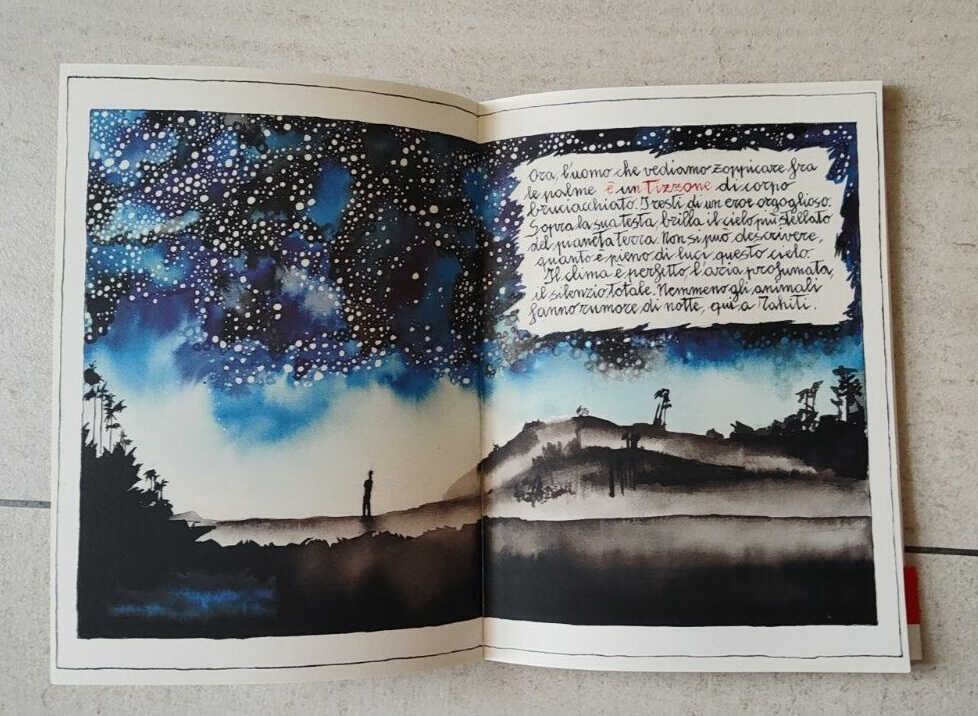 Ora, l'uomo che vediamo zoppicare fra
le palme è un Tizzone di corpo
bruciacchiato. I resti di un eroe orgoglioso.
Sopra la sua testa brilla il cielo più stellato
del pianeta terra. Non si può descrivere,
quanto è pieno di luci questo cielo.
Il clima è perfetto l'aria profumata,
il silenzio totale. Nemmeno gli animali
fanno rumore di notte, qui a Tahiti.